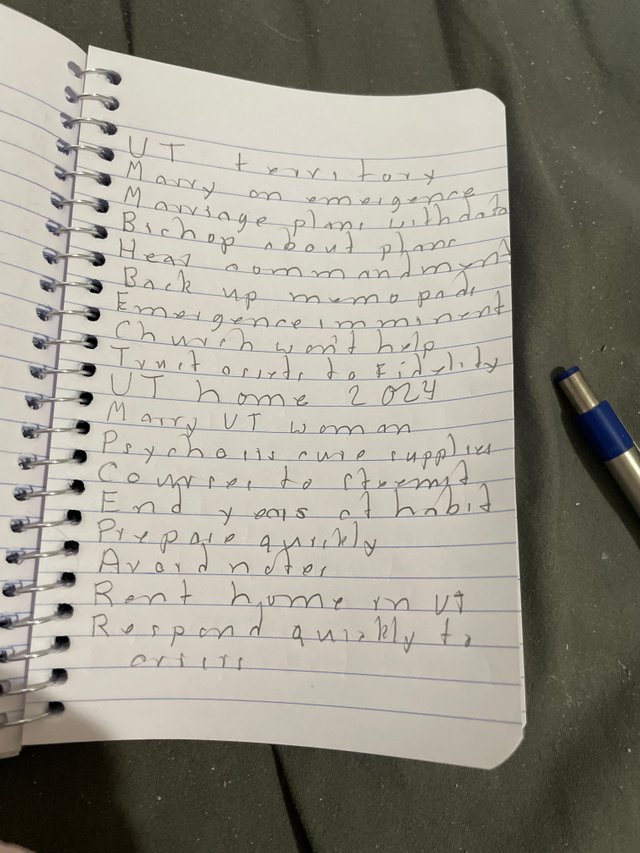 UT territory
Marry on emergence
Marriage plans with data
Bishop about plans
Hear commandment
Back up memo pads
Emergence imminent
Church won't help
Trust assets to Fidelity
UT home 2024
Marry UT woman
Psychosis cure supplies
Courses to
End years of habit
Prepare quickly
Avoid notes
Rent home in UT
Respond quickly to
crisis